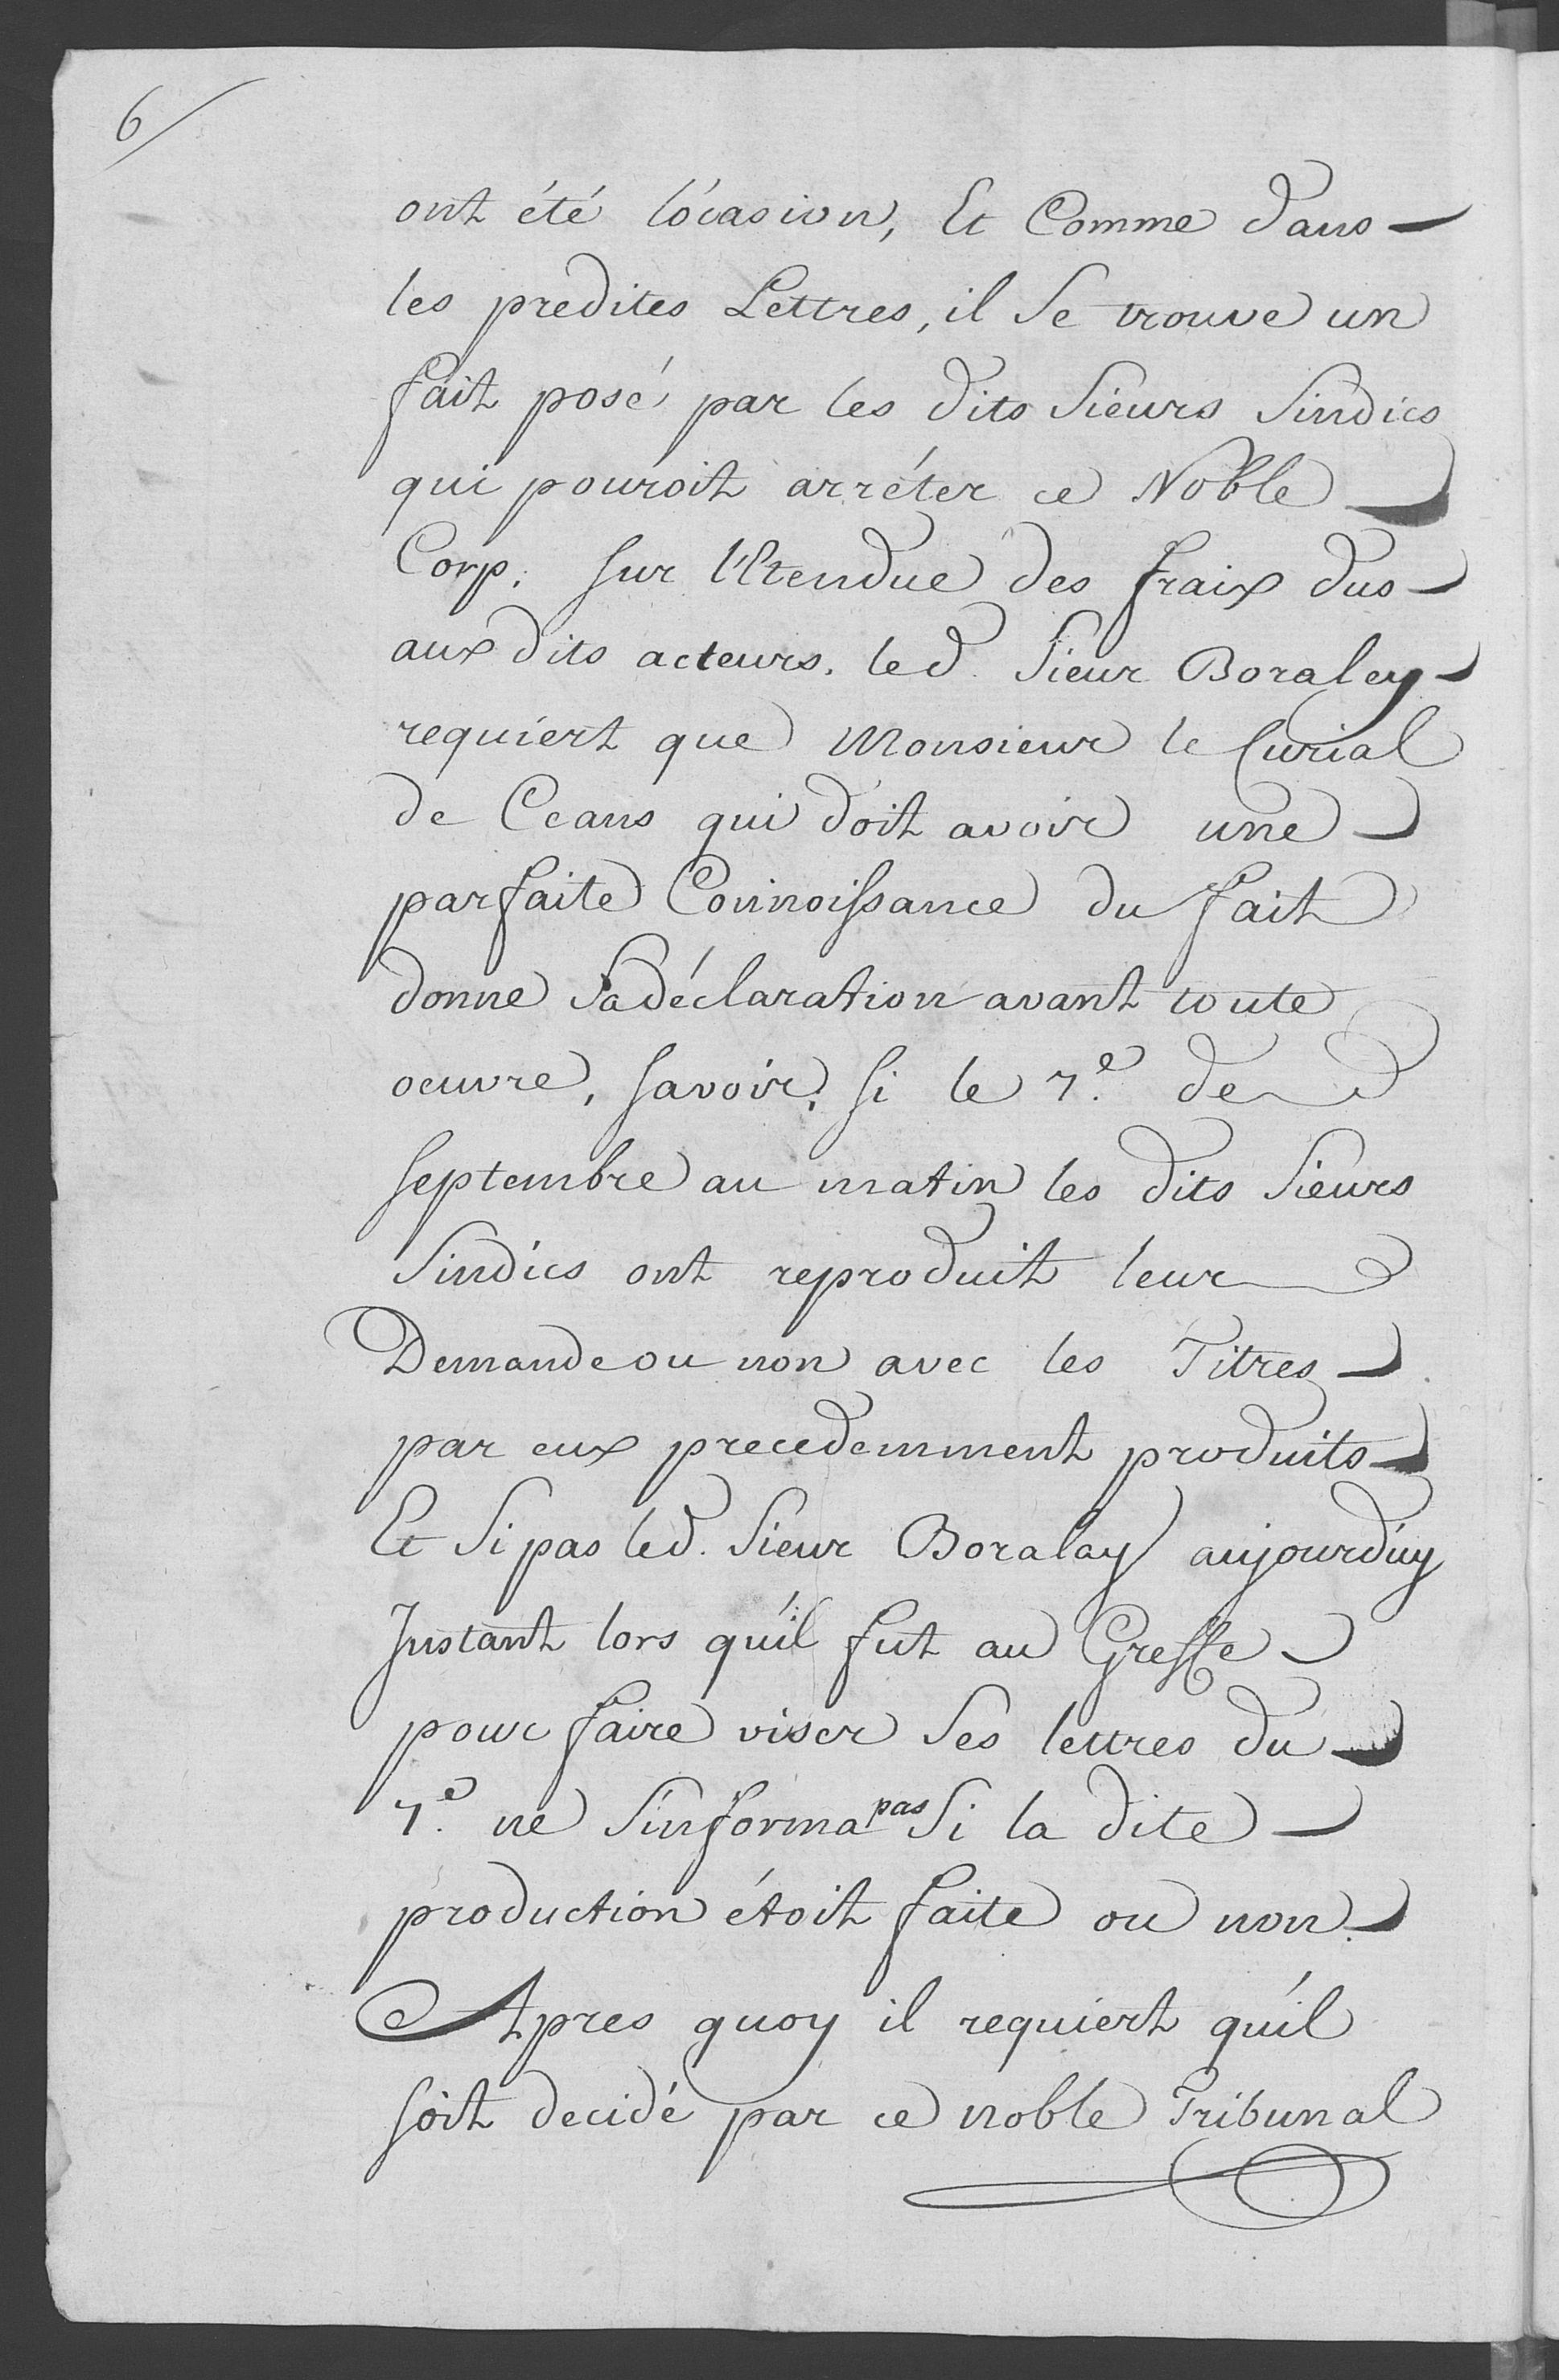 6/
ont été l'ócasion, Et Comme dans
les predites Lettres, il Se trouve un
fait posé par les dits Sieurs Sindics
qui pouroit arréter ce Noble
Corp. sur l'Etendue des fraix dus
aux dits acteurs. led. Sieur Boraley
requiert que Monsieur le Curial
de Ceans qui doit avoir une
parfaite Connoissance du fait
donne Sa déclaration avant toute
oeuvre, savoir, si le 7.e de
septembre au matin les dits Sieurs
Sindics ont reproduit leur
Demande ou non avec les Titres
par eux precedemment produits
Et Si pas led. Sieur Boralay aujourd'uy
Instant lors qu'il fut au Greffe
pour faire viser Ses lettres du
7.e ne S'informa pas Si la dite
production étoit faite ou non.
Apres quoy il requiert qu'il
soit decidé par ce noble Tribunal